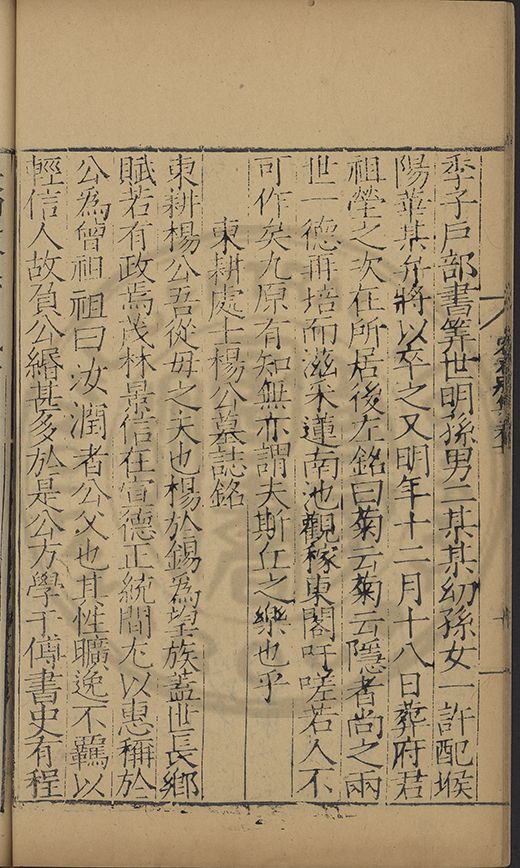 季子戶部書筭世明孫男二某某幼孫女一許配堠
陽華某弁將以卒之又明年十二月十八日葬府君
祖塋之次在所居後左銘曰菊云菊云隱者尚之兩
世一德再培而滋禾蓮南池觀稼東閣吁嗟若人不
可作矣九原有知無亦謂夫斯丘之樂也乎
東耕處士楊公墓誌銘
東耕楊公吾從母之夫也楊於錫為望族蓋世長鄉
賦若有政焉茂林景信在宣德正統間尤以惠稱於
公為僧祖祖曰汝潤者公父也其性曠逸不羈以
輕信人故負公緡甚多於是公方學于傅書史有程